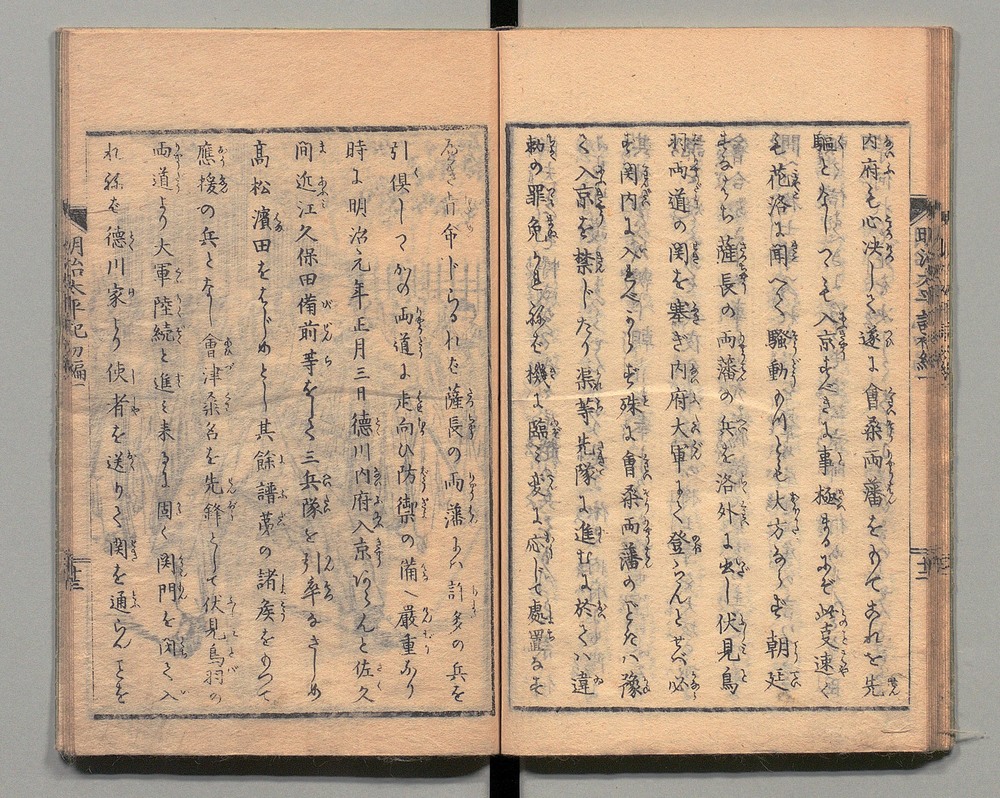 内府も心決しさ遂に會桑両藩をもてこれを先
駆となしつゝも入京すべきに事極まるにぞ此㕝速く
も花洛に聞へて騒動めりとも大方ならず朝廷
すなはち薩長の両藩の兵を洛外に出し伏見鳥
羽両道の関を塞ぎ内府大軍にて登らんとせバ必
ず関内に入るべからず殊に會桑両藩のごときハ豫
て入京を禁じたり渠等先隊に進むに於てハ違
勅の罪免かれねば機に臨ミ変に応じて處置なせ
命じらるれば薩長の両藩にハ許多の兵を
引倶しつゝかの両道に走向ひ防禦の備へ嚴重なり
時に明治元年正月三日徳川内府入京あらんと佐久
間近江久保田備前等をして三兵隊を引率なさしめ
髙松濱田をはじめとし其餘譜第の諸矦をもつて
應援の兵となし會津桑名を先鋒として伏見鳥羽の
両道より大軍陸続と進ミ来るに固く関門を閉て入
れねば徳川家より使者を送りて関を通らんことを
明治太平記初編一
明治太平記初編一
十二